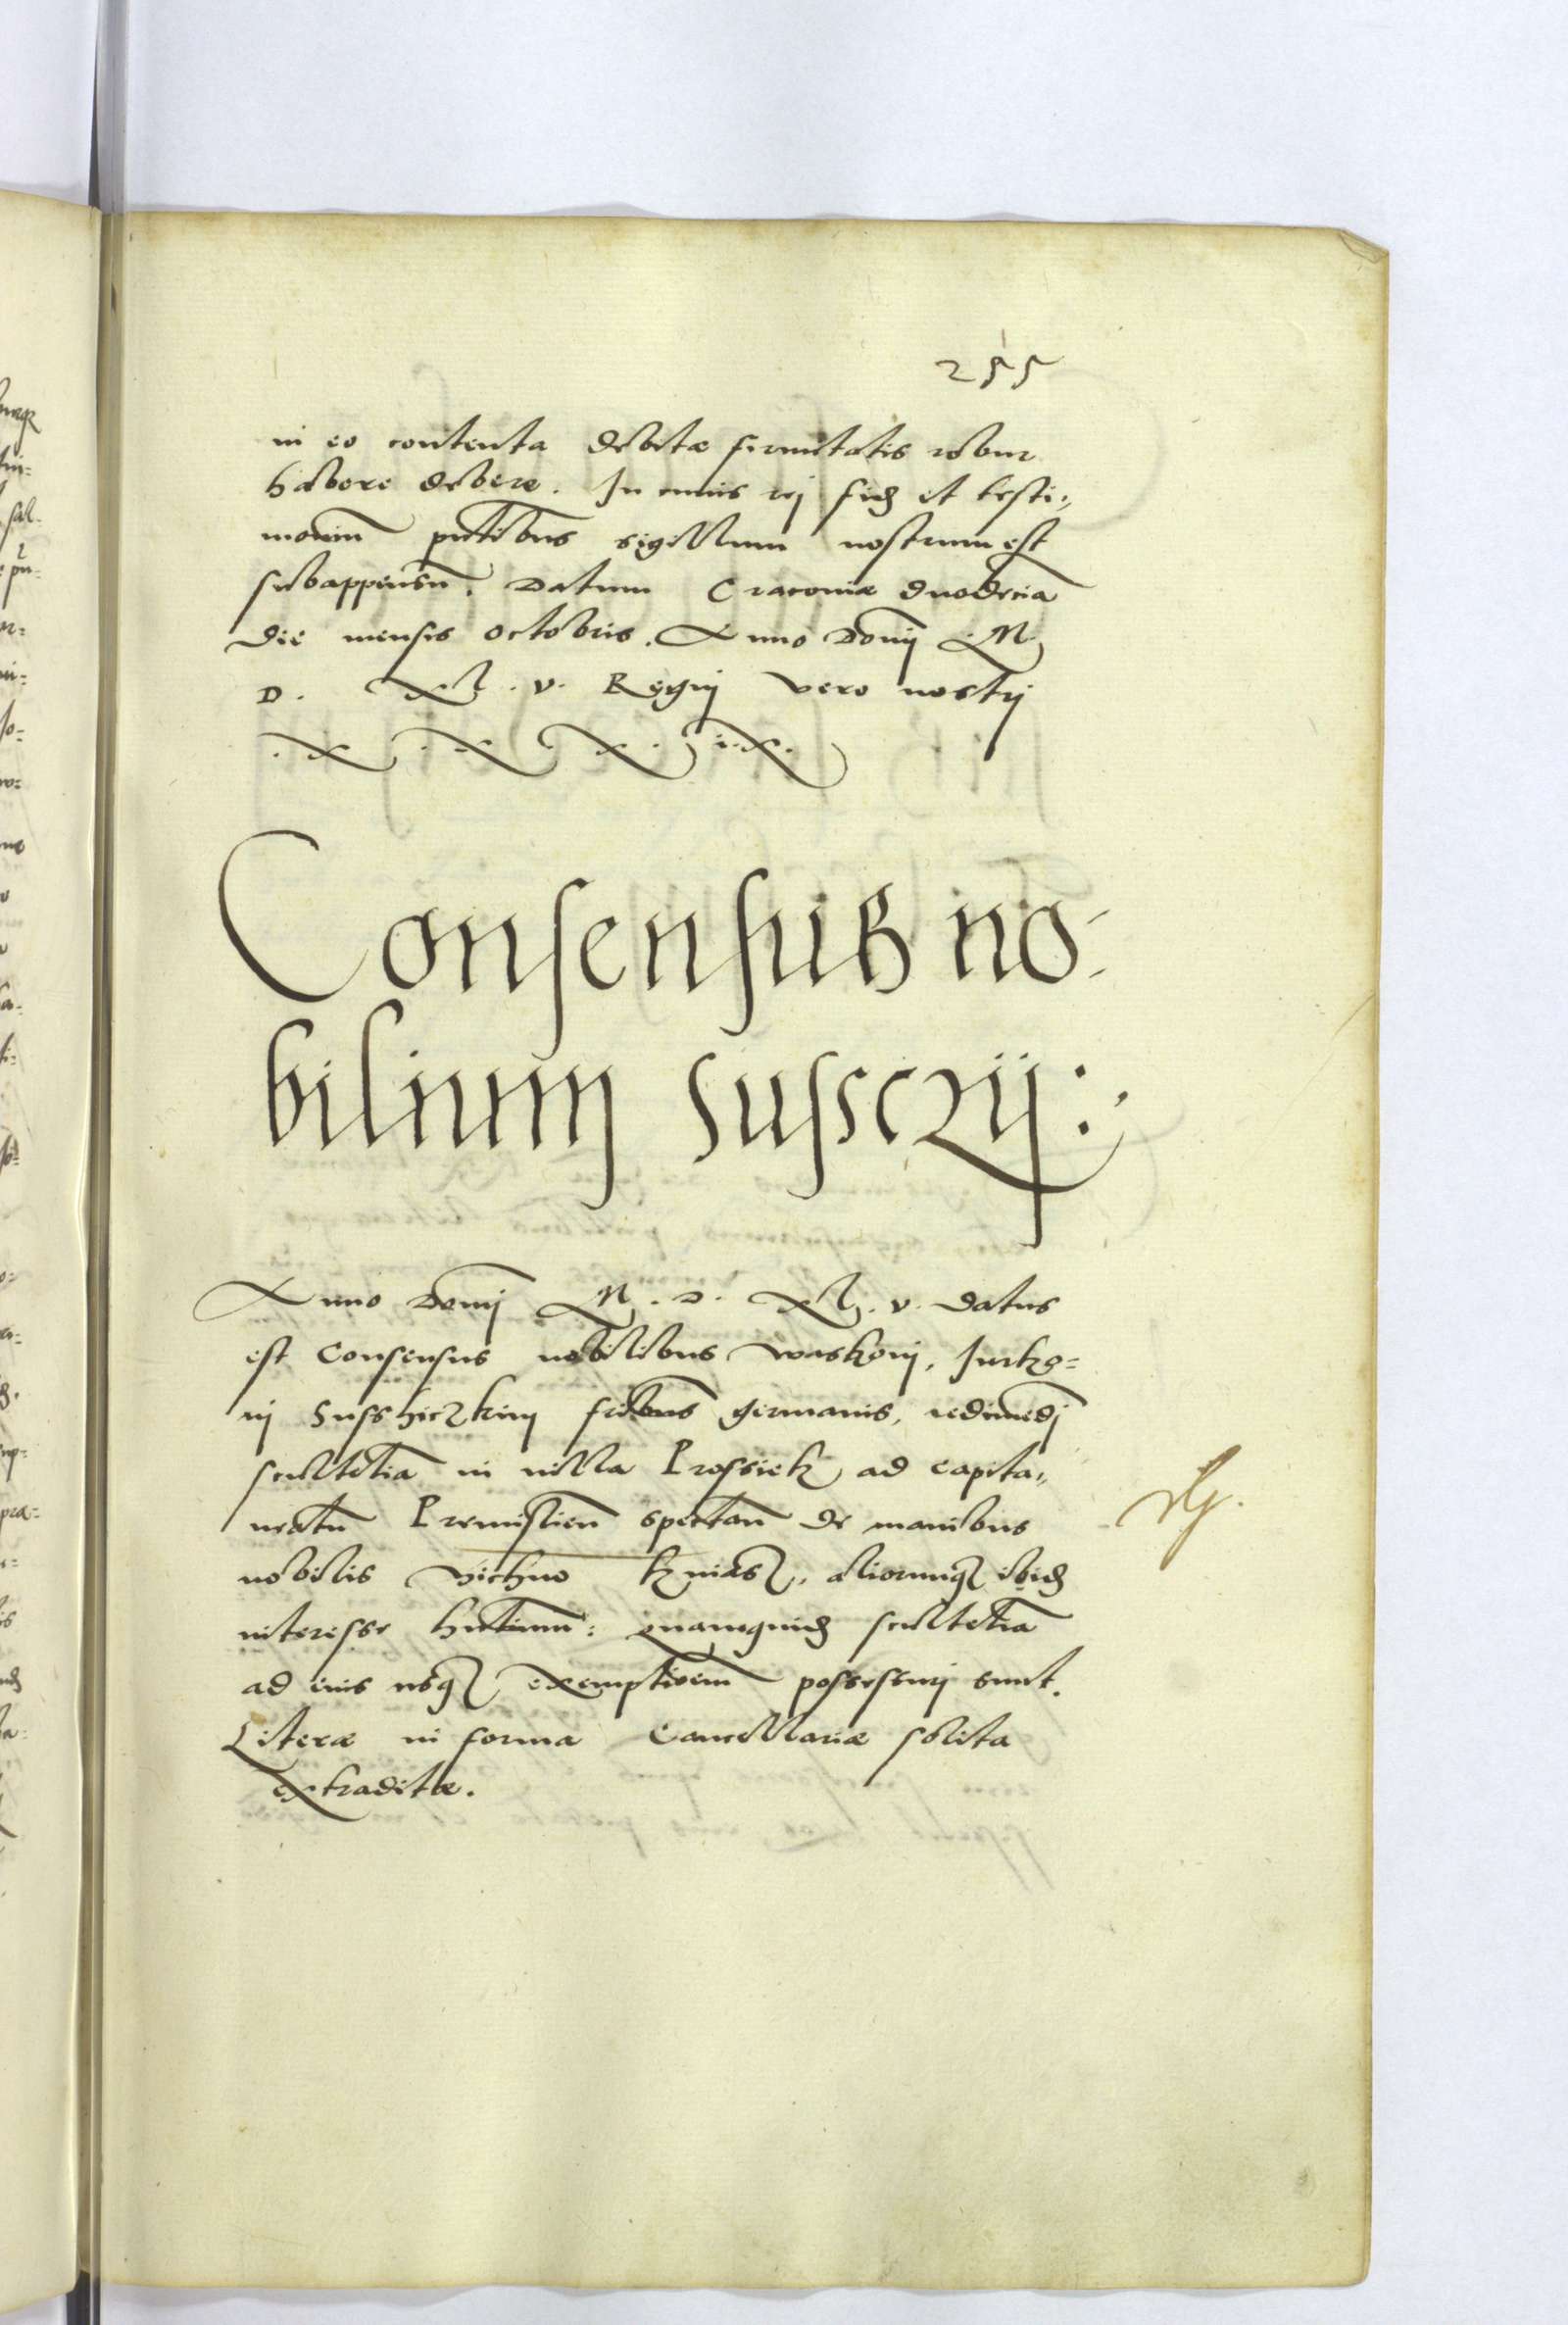 255
in eo contenta debitæ firmitatis robur
habere debere. In cuius rej fid et testi„
monium pntibus sigillum nostrum est
subappensu. Datum Cracoviæ duodecia
die mensis octobris. Anno Domi M.
D. Xl. v. Regnj vero nostrj
.X X X. i.X.
Consensus no-
bilium susscrij:
Anno Domi M. D. Xl. v. datus
est Consensus nobilibus Waskonj, Iurko=
nj fribus germanis, redimedj
scultetia in villa Prossiek ad capita„
neatu Premislien spectan de manibus
nobilis Kniasz, aliorumqz ibid
interesse hntium: quamquid scultetia
ad eius usqz exemptioem possessurj sunt.
Literæ in forma Cancellariæ solita
extraditæ.